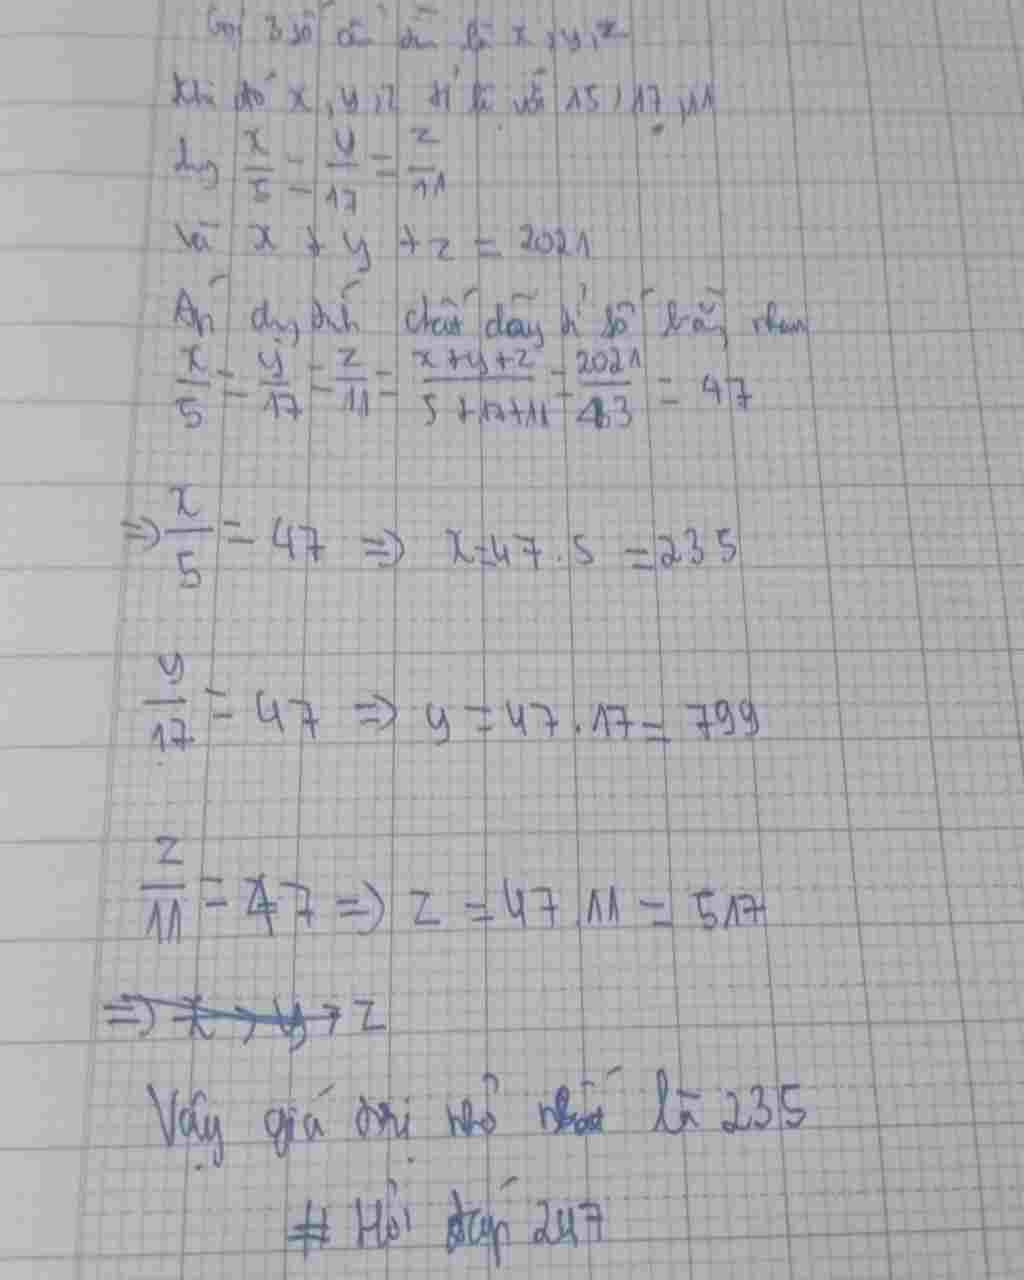 Gọi 3 số cần tìm là x, y, z
Khi đó x, y, z tỉ lệ với 15, 17, 11
x/5 = y/17 = z/11
Và x + y + z = 2021
Áp dụng tính chất dãy tỉ số bằng nhau
x/5 = y/17 = z/11 = x+y+z/5+17+11 = 2021/43 = 47
=> x/5 = 47 => x=47.5 = 235
y/17 = 47 => y = 47.17 = 799
z/11 = 47 => z = 47.11 = 517
=> x, y, z
Vậy giá trị nhỏ nhất là 235
# Hỏi đáp 247